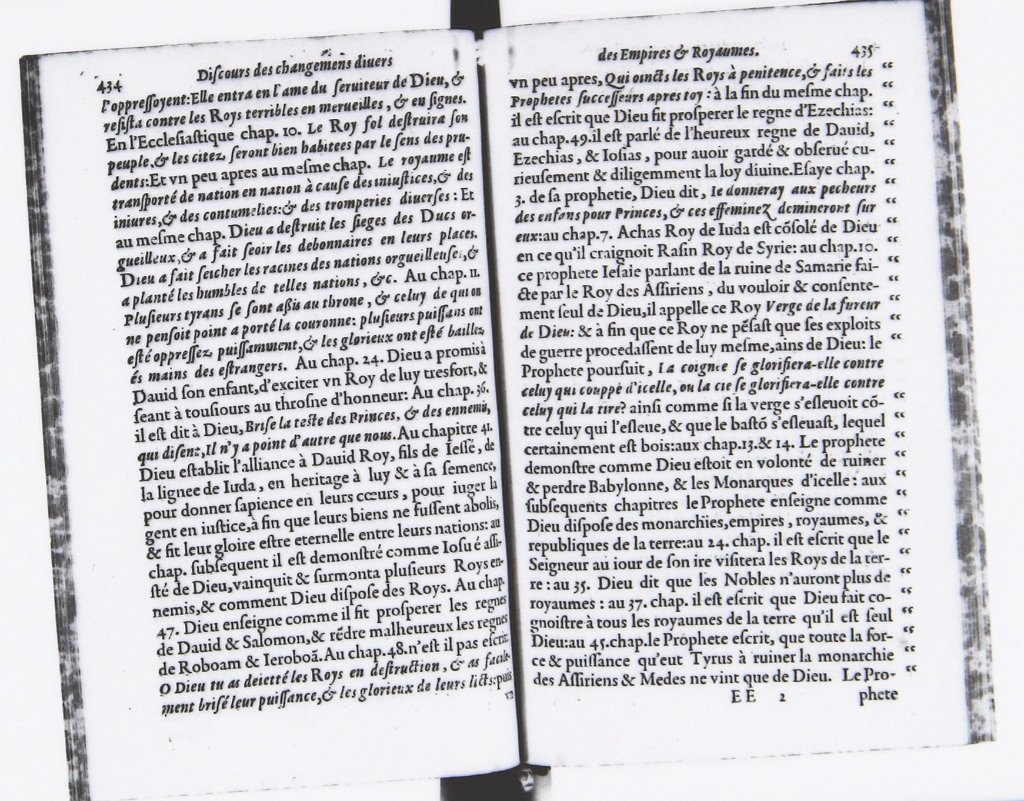 434
Discours des changemens diuers
l'oppressoyent:Elle entra en l'ame du seruiteur de Dieu,&
resista contre les Roys terribles en merueilles, & en signes.
En l'Ecclesiastique chap. 10. Le Roy fol destruira son
peuple,& les citez seront bien habitees par le sens des pru-
dents:Et vn peu apres au mesme chap. Le royaume est
transporté de nation en nation à cause des iniustices,& des
iniures,& des contumelies:& des tromperies diuerses : Et
au mesme chap. Dieu a destruit les sieges des Ducs or-
gueilleux,& a fait seoir les debonnaires en leurs places.
Dieu a fait seicher les racines des nations orgueilleuses,&
a planté les humbles de telles nations, &c. Au chap. 11.
Plusieurs tyrans se sont aßis au throne, & celuy de qui on
ne pensoit point a porté la couronne: plusieurs puissans ont
esté oppressez puissamment,& les glorieux ont esté baillez
és mains des estrangers. Au chap. 24. Dieu a promis à
Dauid son enfant,d'exciter vn Roy de luy tresfort,&
seant à tousiours au throsne d'honneur: Au chap. 36.
il est dit à Dieu, Brise la teste des Princes, & des ennemis,
qui disent,Il n'y a point d'autre que nous. Au chapitre 41.
Dieu establit l'alliance à Dauid Roy, fils de Iessé, de
la lignee de Iuda, en heritage à luy & à sa semence,
pour donner sapience en leurs cœurs, pour iuger la
gent en iustice,à fin que leurs biens ne fussent abolis,
& fit leur gloire estre eternelle entre leurs nations: au
chap. subsequent il est demonstré comme Iosué assi-
sté de Dieu,vainquit & surmonta plusieurs Roys en-
nemis,& comment Dieu dispose des Roys. Au chap.
47. Dieu enseigne comme il fit prosperer les regnes
de Dauid & Salomon,& rẽdre malheureux les regnes
de Roboam & Ieroboã. Au chap.48.n'est il pas escrit
O Dieu tu as deietté les Roys en destruction, & as facile-
ment brisé leur puissance,& les glorieux de leurs licts:puis
vn
des Empires & Royaumes.
435
vn peu apres, Qui oincts les Roys à penitence,& faits les “
Prophetes successeurs apres toy : à la fin du mesme chap. “
il est escrit que Dieu fit prosperer le regne d'Ezechias: “
au chap.49.il est parlé de l'heureux regne de Dauid, “
Ezechias, & Iosias, pour auoir gardé & obserué cu- “
rieusement & diligemment la loy diuine.Esaye chap. “
3. de sa prophetie, Dieu dit, Ie donneray aux pecheurs “
des enfans pour Princes, & ces effeminez domineront sur “
eux:au chap.7. Achas Roy de Iuda est cõsolé de Dieu “
en ce qu'il craignoit Rasin Roy de Syrie: au chap.10. “
ce prophete Iesaie parlant de la ruine de Samarie fai- “
cte par le Roy des Assiriens, du vouloir & consente- “
ment seul de Dieu,il appelle ce Roy Verge de la fureur “
de Dieu: & à fin que ce Roy ne pẽsast que ses exploits “
de guerre procedassent de luy mesme,ains de Dieu: le “
Prophete poursuit, La coignee se glorifiera-elle contre
celuy qui couppe d'icelle, ou la cie se glorifiera-elle contre
celuy qui la tire? ainsi comme si la verge s'esleuoit cõ- “
tre celuy qui l'esleue, & que le bastõ s'esleuast, lequel “
certainement est bois:aux chap.13.& 14. Le prophete “
demonstre comme Dieu estoit en volonté de ruiner “
& perdre Babylonne, & les Monarques d'icelle : aux “
subsequents chapitres le Prophete enseigne comme “
Dieu dispose des monarchies,empires, royaumes, & “
republiques de la terre:au 24. chap. il est escrit que le “
Seigneur au iour de son ire visitera les Roys de la ter- “
re : au 35. Dieu dit que les Nobles n'auront plus de “
royaumes : au 37. chap. il est escrit que Dieu fait co- “
gnoistre à tous les royaumes de la terre qu'il est seul “
Dieu:au 45.chap.le Prophete escrit, que toute la for- “
ce & puissance qu'eut Tyrus à ruiner la monarchie “
des Assiriens & Medes ne vint que de Dieu. Le Pro- “
EE 2 phete